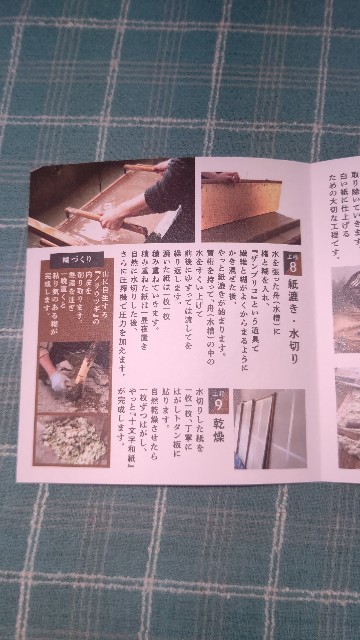 取り除いていきます。
白い紙に仕上げる
ための大切な工程です。
工程8 紙漉き・水切り
水を張った舟(水槽)に
楮と糊を入れ、
『ザンブリコ』という道具で
繊維と糊がよくからまるように
かき混ぜた後、
やっと紙漉きが始まります。
簀桁を持って、舟(水槽)の中の
水をすくい上げて
前後にゆすっては流してを
繰り返します。
漉いた紙は一枚一枚
積み重ねていきます。
積み重ねた紙は一昼夜置き
自然に水切りした後、
さらに圧搾機で圧力を加えます。
工程9 乾燥
水切りした紙を
一枚一枚、丁寧に
はがしトタン板に
貼ります。
自然乾燥させたら
一枚ずつはがし、
やっと『十文字和紙』
が完成します。
糊づくり
山に自生する
『ノリウツギ』の
内皮を
削り取ります。
熱湯を注ぎ
一晩置くと
粘り気のある糊が
完成します。